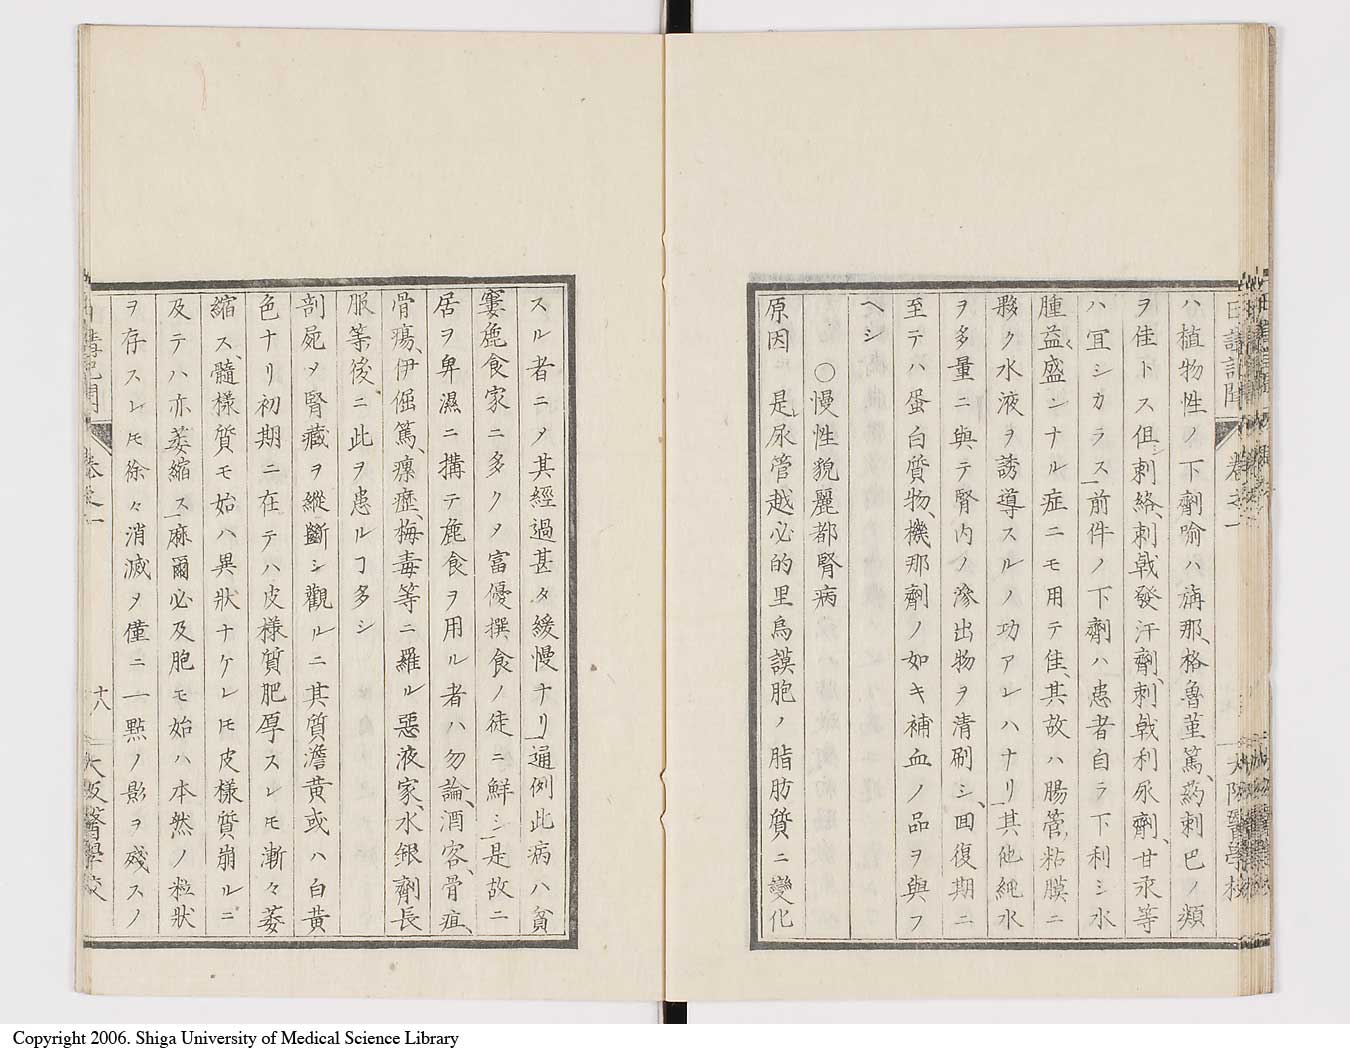 日講記聞 卷之一 大阪醫學校
ハ植物性ノ下劑喩ハ旃那、格魯菫篤、葯刺巴ノ類
ヲ佳トス但シ刺絡、刺戟發汗劑、刺戟利尿劑、甘汞等
ハ冝シカラス前件ノ下劑ハ患者自ラ下利シ水
腫益〻盛ンナル症ニモ用テ佳、其故ハ腸管粘膜ニ
夥ク水液ヲ誘導スルノ功アレハナリ其他純水
ヲ多量ニ與テ腎内ノ滲出物ヲ清刷シ、囬復期ニ
至テハ蛋白質物、機那劑ノ如キ補血ノ品ヲ與フ
ヘシ
○慢性貌麗都腎病
原因 是尿管越必的里烏謨胞ノ脂肪質ニ變化
スル者ニメ其經過甚タ緩慢ナリ通例此病ハ貧
窶麁食家ニ多クメ富優撰食ノ徒ニ鮮シ是故ニ
居ヲ卑濕ニ搆テ麁食ヲ用ル者ハ勿論、酒客、骨疽、
骨瘍、伊倔篤、瘰癧、梅毒等ニ羅ル惡液家、水銀劑長
服等後ニ此ヲ患ルヿ多シ
剖屍メ腎藏ヲ縱斷シ觀ルニ其質澹黄或ハ白黄
色ナリ初期ニ在テハ皮様質肥厚スレモ漸々萎
縮ス、髓様質モ始ハ異狀ナケレㇳモ皮様質崩ルニ
及テハ亦萎縮ス麻爾必及胞モ始ハ本然ノ粒狀
ヲ存スレㇳモ徐々消滅メ僅ニ一點ノ影ヲ殘スノ
日講記聞 卷之一 十八 大阪醫學校
Copyright 2006. Shiga University of Medical Science Library